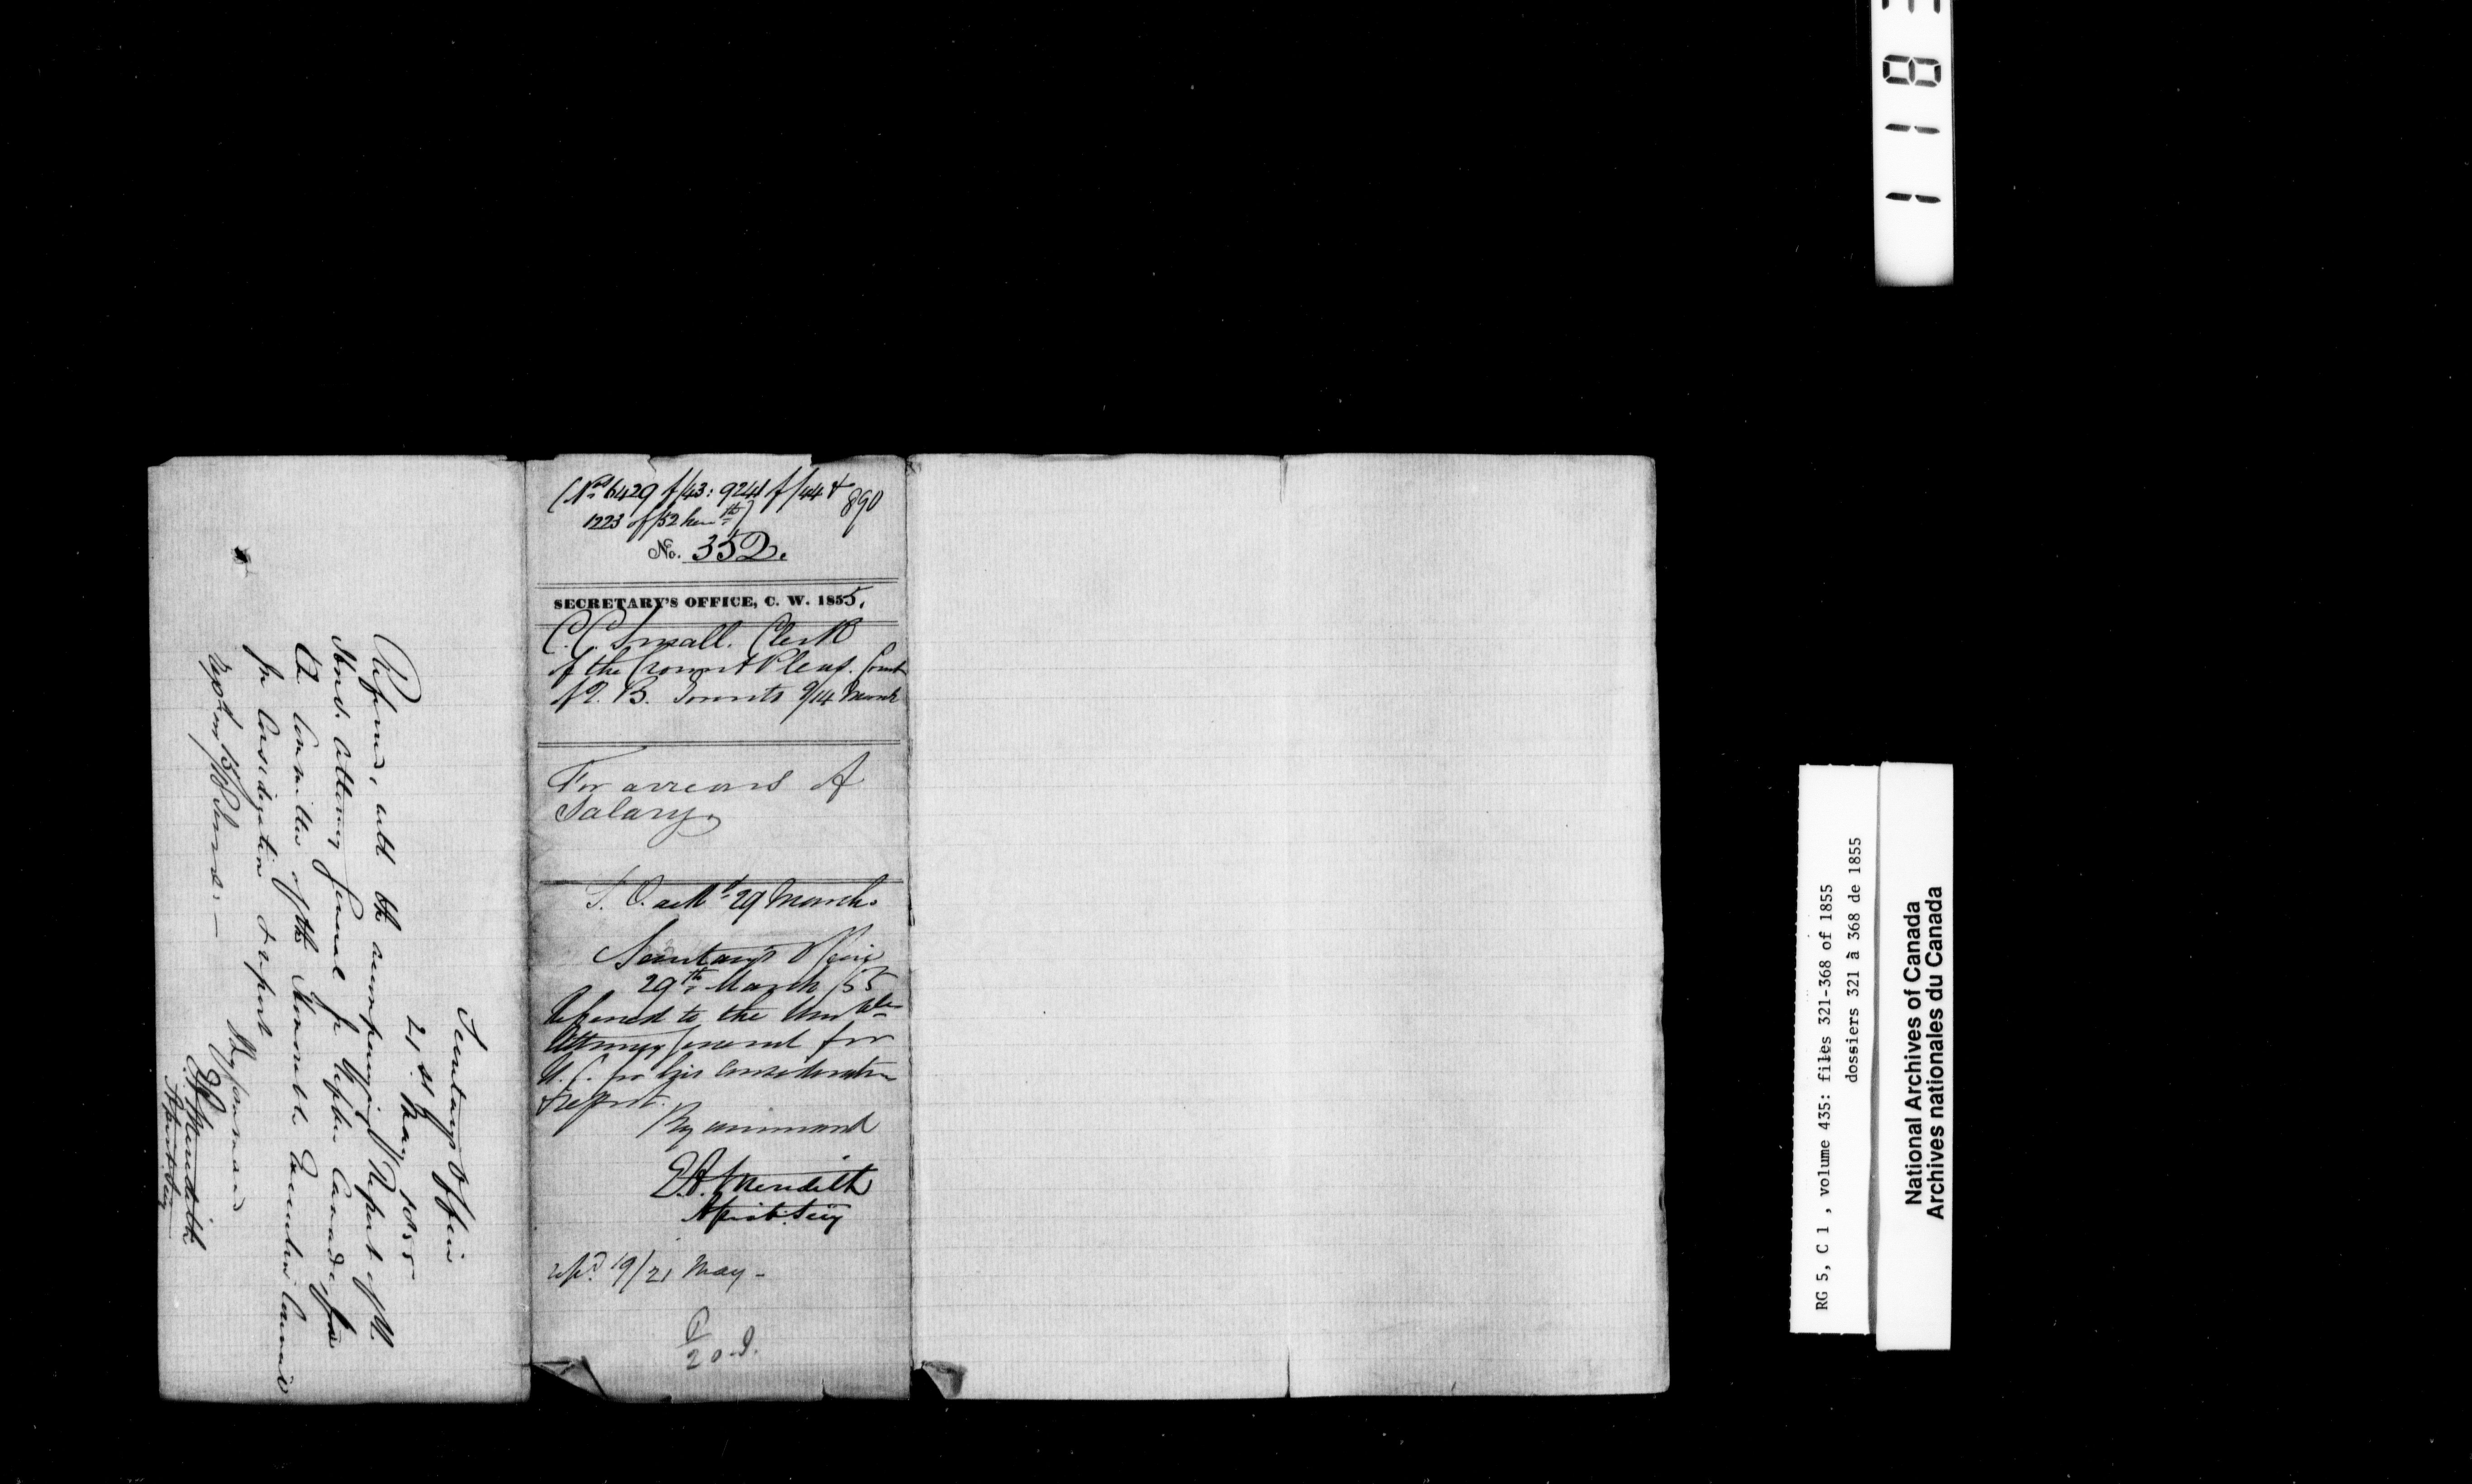 (Nos 6429 of/43: 9241 of/44 &
1223 of/52 herewth)
890
No. 352.
SECRETARY'S OFFICE, C. W. 1855.
C. C. Small. Clerk
of the Crown & Pleas. Court
of Q. B. Toronto 9/14 March
For arrears of
Salary.
ackd 29 March.
Secretary's Office
29th March /55
Referred to the Honble
Attorney General for
U. C. for his consideration
& report.
By command
E.A. Meredith
Assist. Secy
19/21 May -
20.
Secretary's Office
21st May 1855
Referred, with the accompanying Report of the
Hond. Attorney General for Upper Canada, to
the Committee of the Honorable Executive Council
for Consideration & report
By Command
E A Meredith
Assist. Secy
1183
RG 5, C 1 , volume 435: files 321-368 of 1855
dossiers 321 à 368 de 1855
National Archives of Canada
Archives nationales du Canada